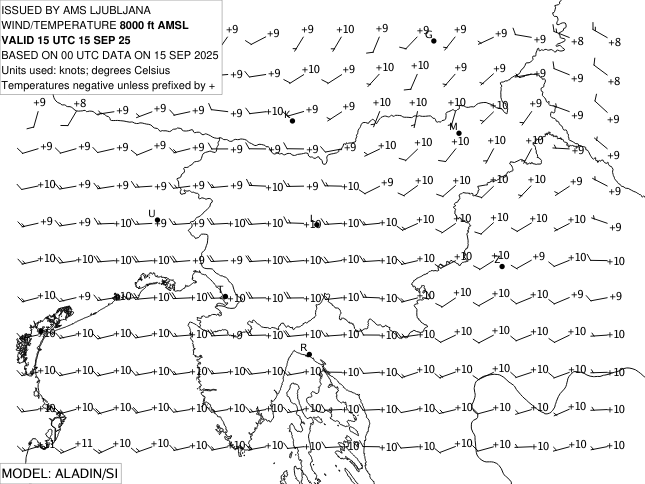 ISSUED BY AMS LJUBLJANA
WIND/TEMPERATURE 8000 ft AMSL
VALID 15 UTC 15 SEP 25
BASED ON 00 UTC DATA ON 15 SEP 2025
Units used: knots; degrees Celsius
Temperatures negative unless prefixed by +
+9 +9 +9 +9 +9 G +9 +9 +8 +8
+9 +10 +9 +9 +10 +9 +9 +9 +8
+9 +8 +9 +10 K +9 +9 +10 +10 +10 +10 +9 +9
+9 +9 +9 +9 +9 +9 +9 +9 +9 +10 +10 M +10 +10 +10 +9 +9
+10 +9 +9 +9 +9 +10 +10 +10 +10 +9 +10 +10 +10 +10 +9 +9
+10 +9 +10 U +9 +9 +10 +10 L +10 +10 +10 +10 +10 +10 +10 +9 +9
+10 +10 +10 +10 +9 +9 +10 +10 +10 +10 +10 +10 Z +10 +9 +9 +9
+10 +9 +10 +10 +10 T +10 +10 +10 +10 +10 +10 +10 +10 +10 +9 +9
+10 +10 +10 +10 +10 +9 +10 +10 +10 +10 +10 +10 +10 +10 +10 +10
R
+10 +10 +10 +10 +10 +10 +10 +10 +10 +10 +10 +10 +10 +10 +10 +10
+10 +10 +10 +10 +10 +10 +10 +10 +10 +10 +10 +10 +10 +10 +10 +10
+11 +11 +10 +10 +10 +10 +10 +10 +10 +10 +10 +10 +10 +10 +10 +10
MODEL: ALADIN/SI